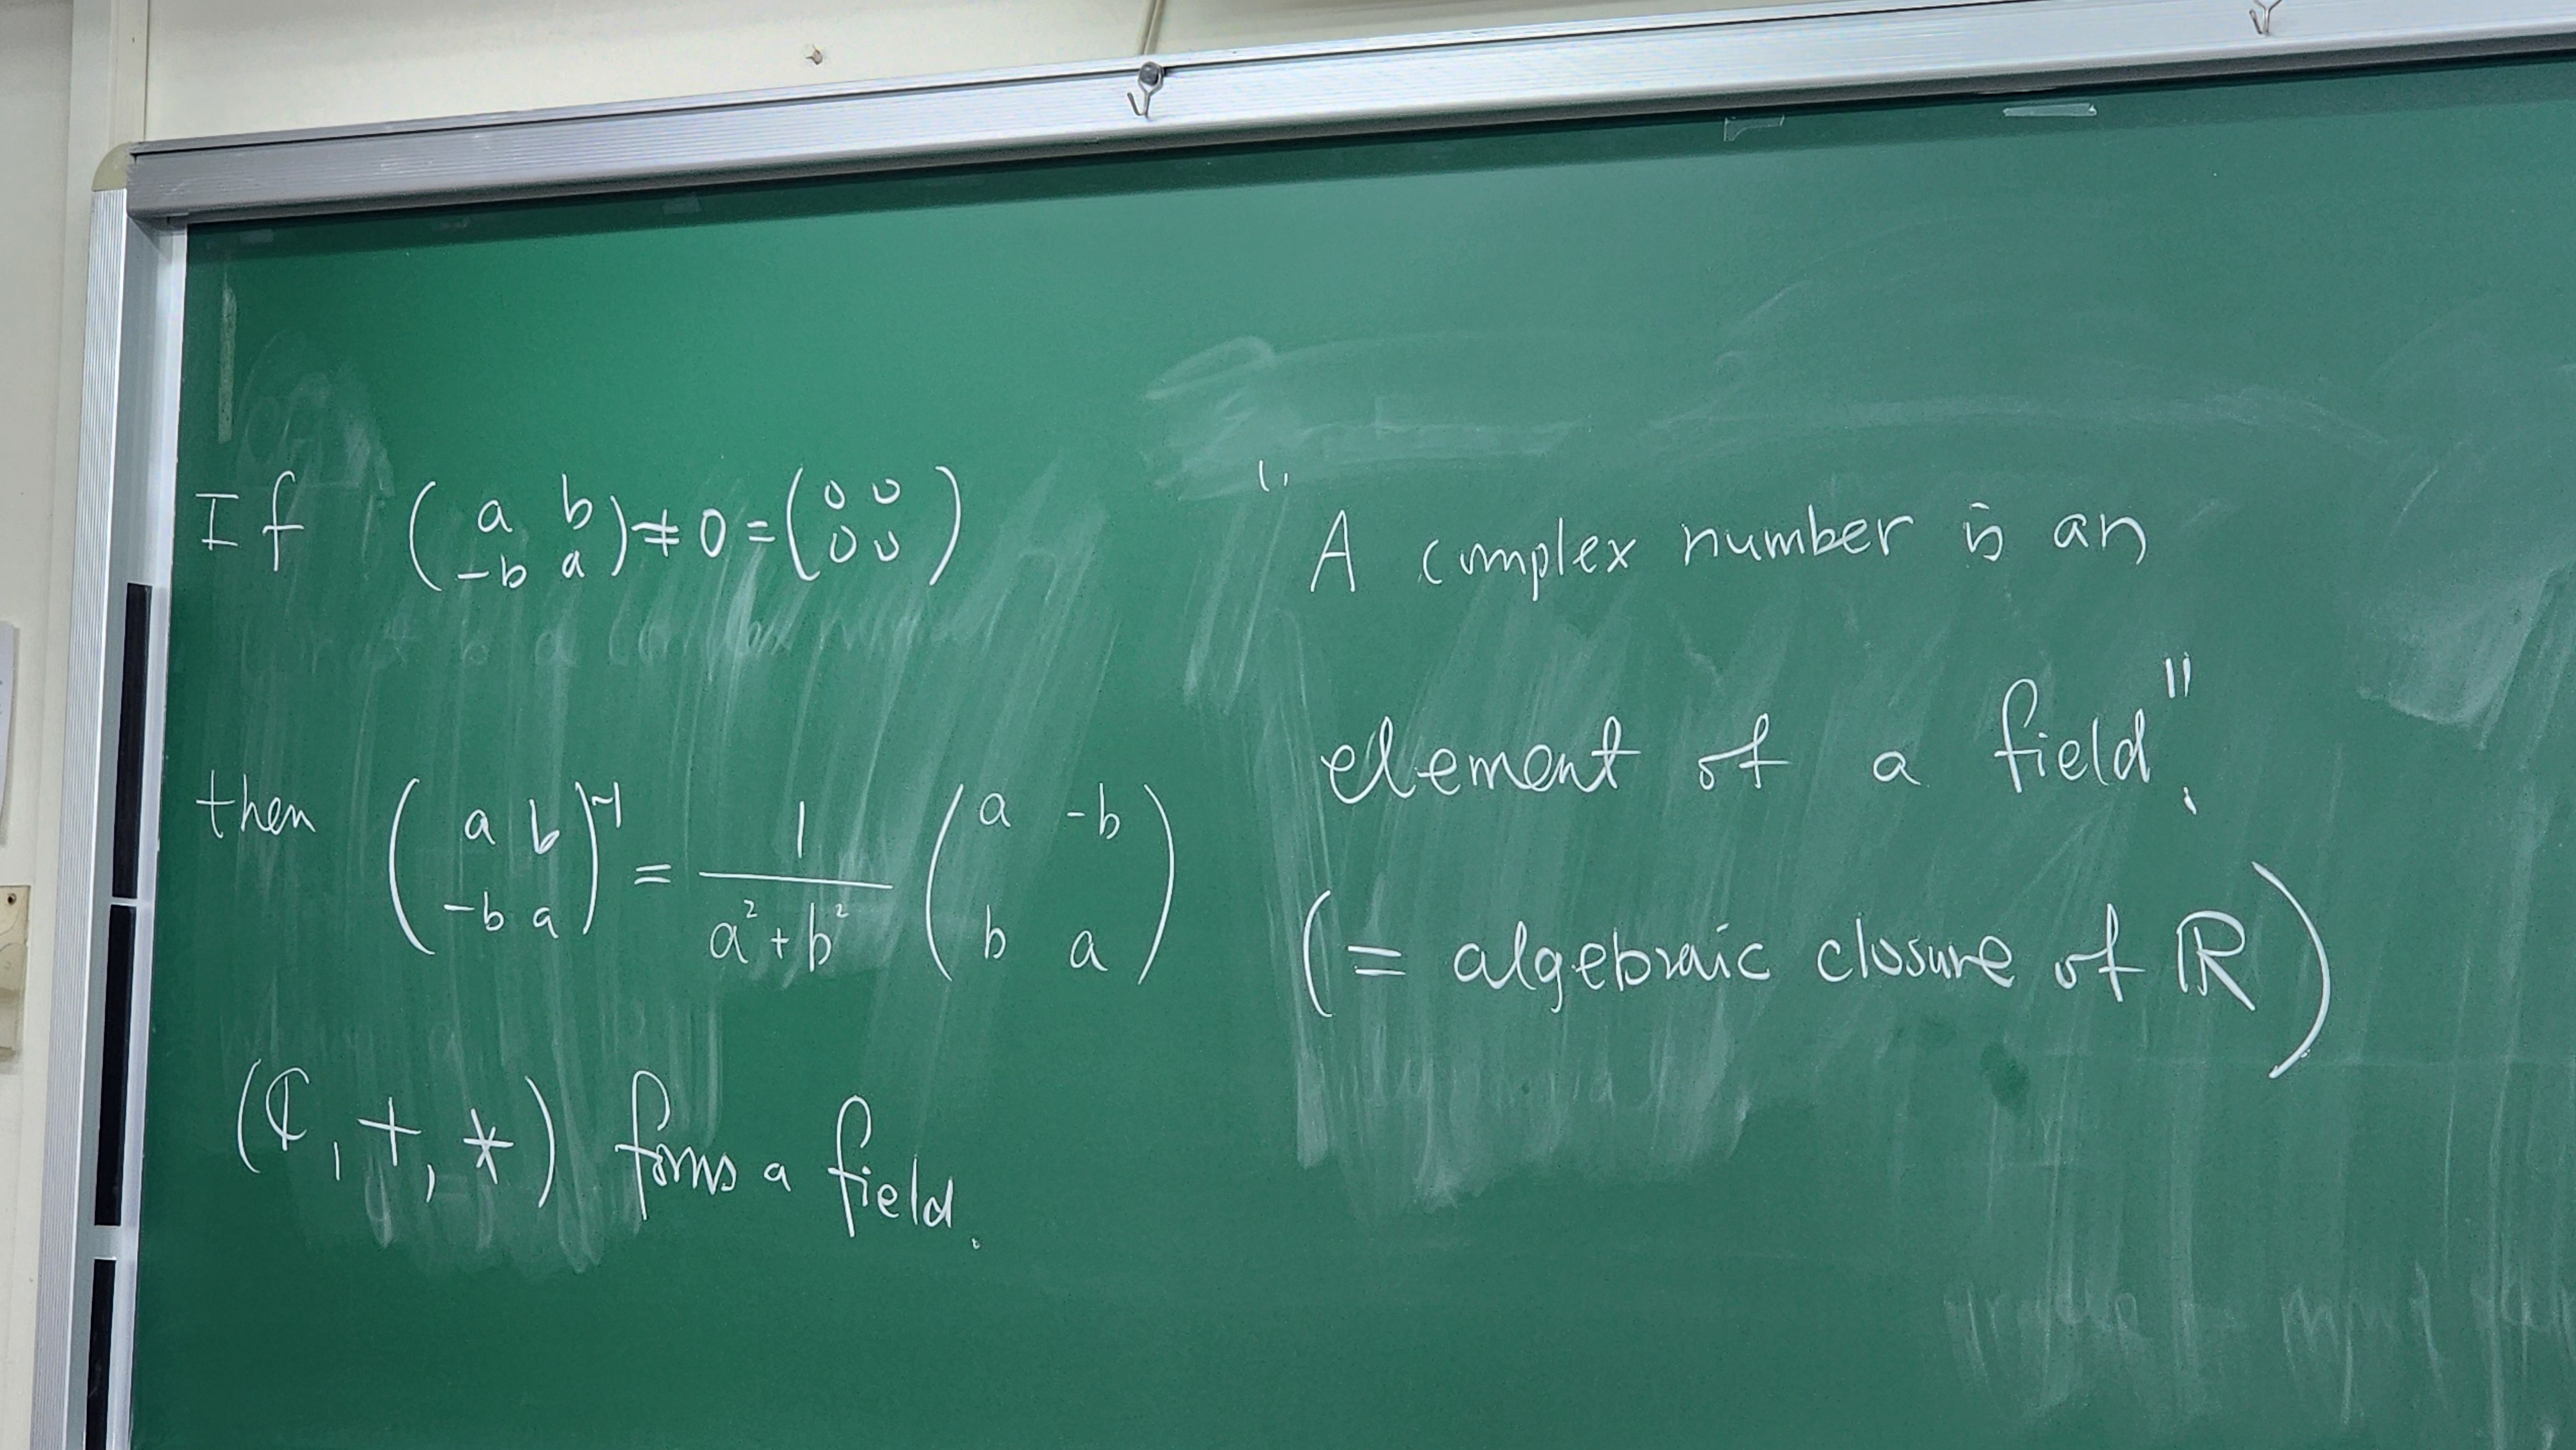 If ( a b -b a ) ≠ 0 = ( 0 0 0 0 )
then ( a b -b a )⁻¹ = 1 / (a² + b²) ( a -b b a )
(ℂ, +, *) forms a field.
"A complex number is an
element of a field".
(= algebraic closure of ℝ)